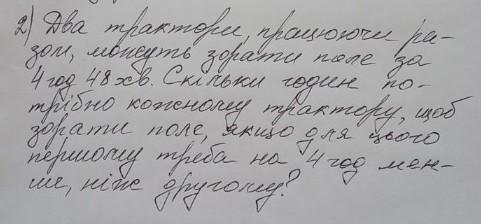 2) Два трактори, працюючи ра-
зом, можуть зорати поле за
4 год 48 хв. Скільки годин по-
трібно кожному трактору, щоб
зорати поле, якщо для цього
першому треба на 4 год мен-
ше, ніж другому?